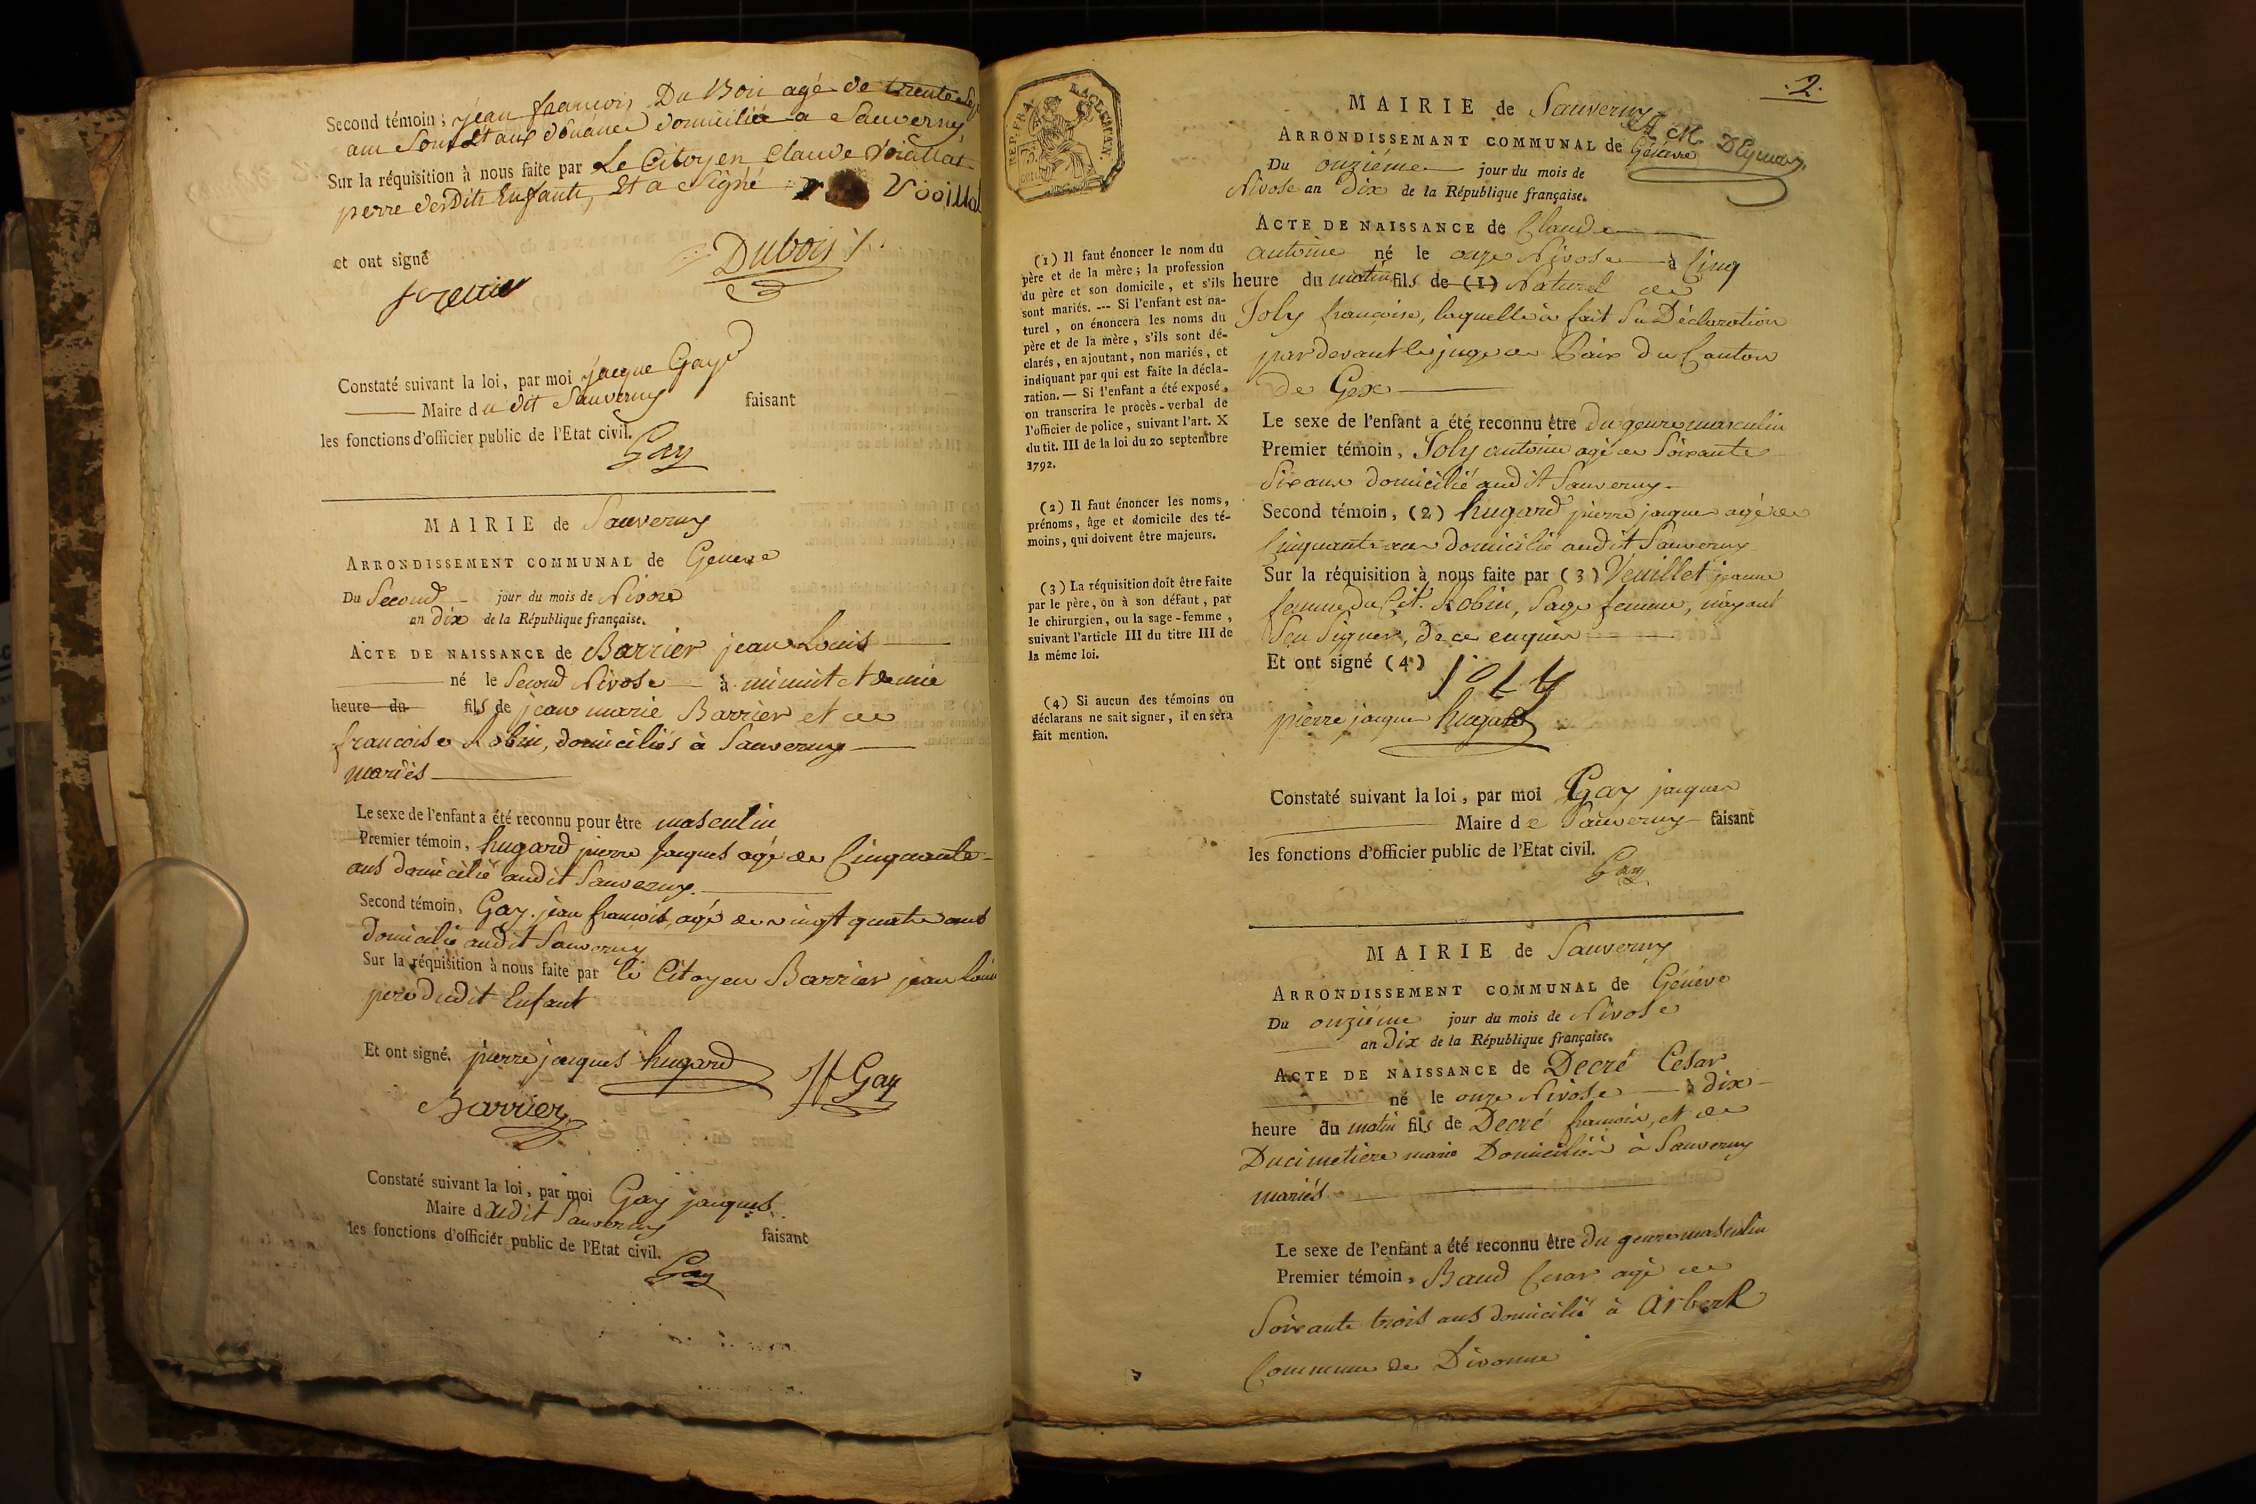 Second témoin ; jean francois Du Bois agé de trente Sept
ans domicilié a Sauverny
Sur la réquisition à nous faite par Le Citoyen Claude Voiallat
perre desdits Enfants, Et a Signé Voillat
et ont signé
Dubois
Constaté suivant la loi, par moi jacque Gay
Maire du dit Sauverny faisant
les fonctions d'officier public de l'Etat civil.
Gay
MAIRIE de Sauverny
ARRONDISSEMENT COMMUNAL de Geneve
Du Second jour du mois de Nivose
an dix de la République française.
ACTE DE NAISSANCE de Barrier jean Louis
né le Second Nivose à minuit et demie
heure du fils de jean marie Barrier et de
francoise Robin, domiciliés à Sauverny
mariés
Le sexe de l'enfant a été reconnu pour être masculin
Premier témoin, hugard pierre jacques agé de Cinquante
ans domicilié audit Sauverny.
Second témoin, Gay jean francois, agé de vingt quatre ans
domicilié audit Sauverny
Sur la réquisition à nous faite par le Citoyen Barrier jean louis
pere dudit Enfant
Et ont signé. pierre jacques hugard JF Gay
Barrier
Constaté suivant la loi, par moi Gay jacques
Maire dudit Sauverny faisant
les fonctions d'officier public de l'Etat civil.
Gay
2.
REP. FRA.
MAIRIE de Sauverny
ARRONDISSEMANT COMMUNAL de Genève
Du onzième jour du mois de
Nivose an Dix de la République française.
ACTE DE NAISSANCE de Claude
antoine né le onze Nivose à Cinq
heure du matin fils de (1) Naturel de
Joly francoise, laquelle a fait Sa Déclaration
pardevant le juge de Paix du Canton
de Gex
Le sexe de l'enfant a été reconnu être du genre masculin
Premier témoin, Joly antoine agé de Soixante
Six ans domicilié audit Sauverny.
Second témoin, (2) hugard pierre jacques agé de
Cinquante ans domicilié audit Sauverny
Sur la réquisition à nous faite par (3) Veuillet jeanne
femme du Cit. Robin, Sage femme, n'ayant
Seu Signer, de ce enquise
Et ont signé (4) Joly
pierre jacques hugard
Constaté suivant la loi, par moi Gay jacques
Maire de Sauverny faisant
les fonctions d'officier public de l'Etat civil.
Gay
(1) Il faut énoncer le nom du
père et de la mère ; la profession
du père et son domicile, et s'ils
sont mariés. --- Si l'enfant est na-
turel, on énoncera les noms du
père et de la mère, s'ils sont dé-
clarés, en ajoutant, non mariés, et
indiquant par qui est faite la décla-
ration. — Si l'enfant a été exposé,
on transcrira le procès-verbal de
l'officier de police, suivant l'art. X
du tit. III de la loi du 20 septembre
1792.
(2) Il faut énoncer les noms,
prénoms, âge et domicile des té-
moins, qui doivent être majeurs.
(3) La réquisition doit être faite
par le père, ou à son défaut, par
le chirurgien, ou la sage-femme,
suivant l'article III du titre III de
la même loi.
(4) Si aucun des témoins ou
déclarans ne sait signer, il en sera
fait mention.
MAIRIE de Sauverny
ARRONDISSEMENT COMMUNAL de Génève
Du onzième jour du mois de Nivose
an Dix de la République française.
ACTE DE NAISSANCE de Decré Cesar
né le onze Nivose à dix
heure du matin fils de Decré francois, et de
Ducimetiere marie Domiciliés à Sauverny
mariés
Le sexe de l'enfant a été reconnu être du genre masculin
Premier témoin, Baud Cesar agé de
Soixante trois ans domicilié à Arbere
Commune de Divonne